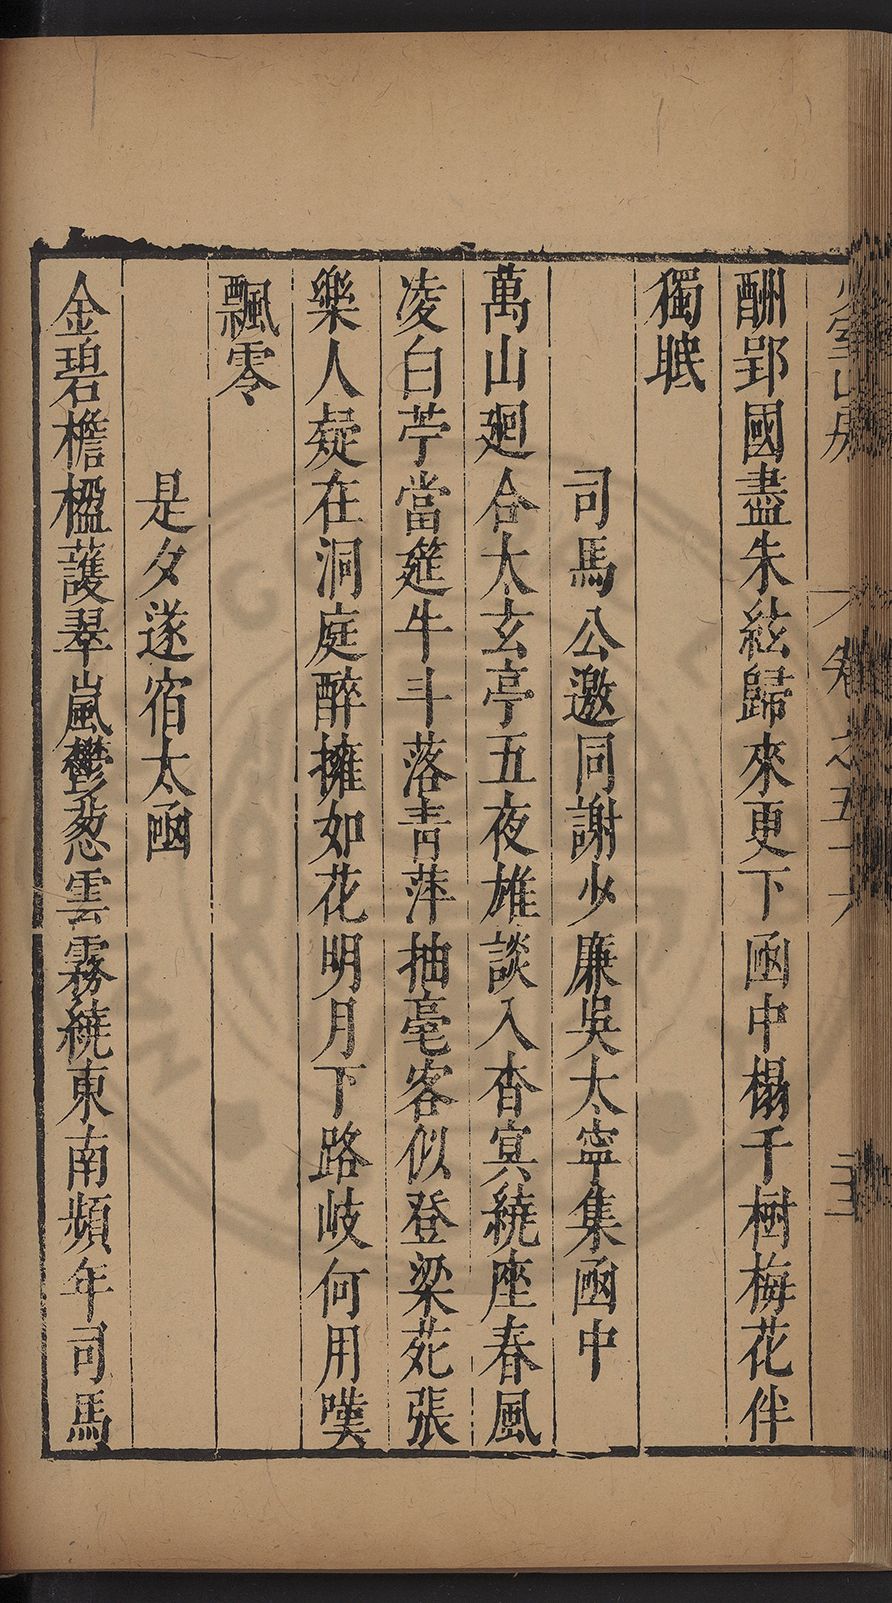 酬郢國盡朱絃歸來更下凾中榻千樹梅花伴
獨眠
司馬公邀同謝少廉吳太寧集凾中
萬山廻合太玄亭五夜雄談入杳冥繞座春風
凌白苧當筵牛斗落青萍抽毫客似登梁苑張
樂人疑在洞庭醉擁如花明月下路岐何用嘆
飄零
是夕遂宿太凾
金碧檐楹護翠嵐鬱葱雲霧繞東南頻年司馬